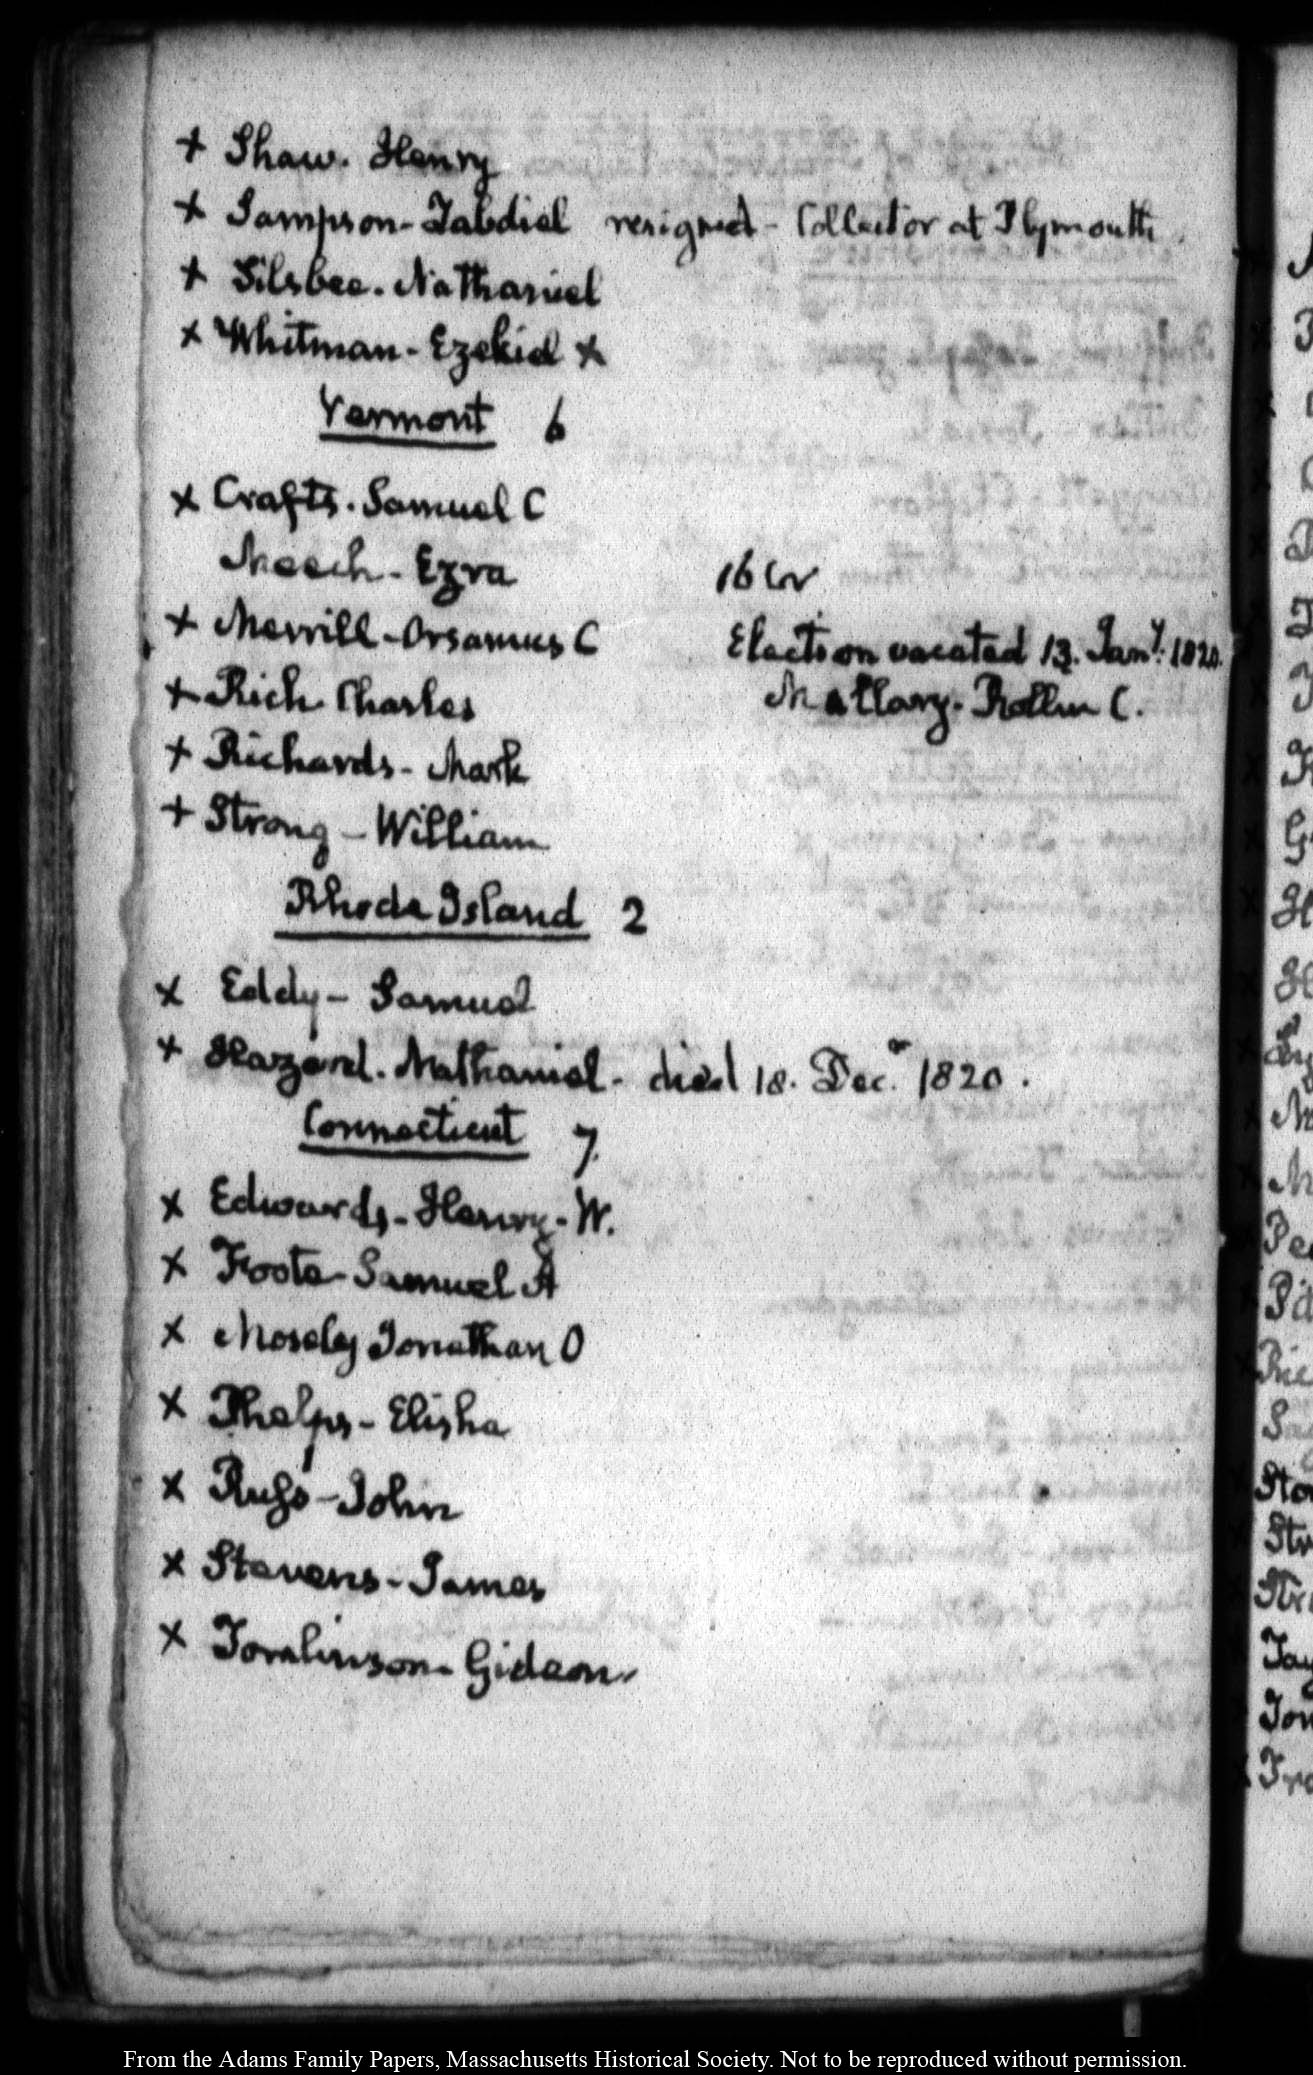 + Shaw. Henry
+ Sampson-Zabdiel resigned - Collector at Plymouth
+ Silsbee. Nathaniel
x Whitman-Ezekiel x
Vermont 6
x Crafts. Samuel C
Meech-Ezra 16 Cr
x Merrill-Orsamus C Election vacated 13. Jany. 1820.
x Rich. Charles Mallary. Rollin C.
+ Richards-Mark
+ Strong-William
Rhode Island 2
x Eddy-Samuel
x Hazard. Nathaniel- died 18. Decr. 1820.
Connecticut 7.
x Edwards-Henry-W.
x Foote-Samuel A
x Mosely Jonathan O
x Phelps-Elisha
x Russ-John
x Stevens-James
x Tomlinson-Gideon
From the Adams Family Papers, Massachusetts Historical Society. Not to be reproduced without permission.